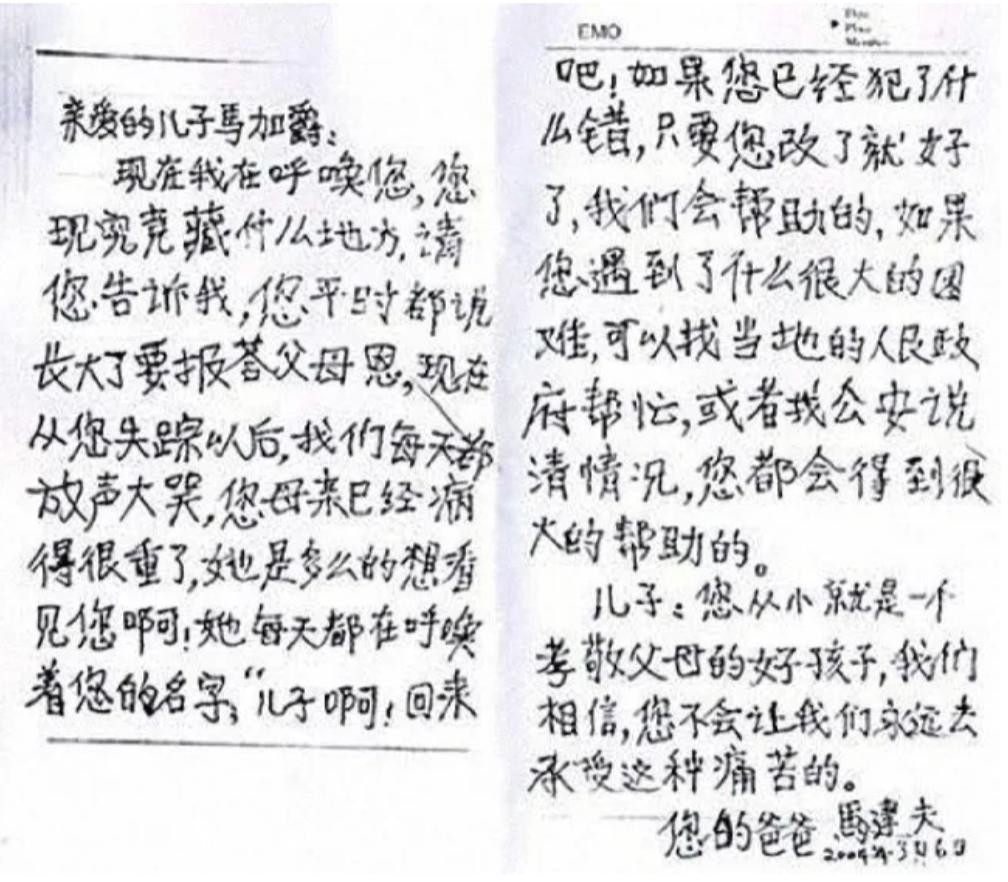 亲爱的儿子馬加爵：
现在我在呼唤您，您
现究竟藏什么地方，请
您告诉我，您平时都说
长大了要报荅父母恩，现在
从您失踪以后，我们每天都
放声大哭，您母亲已经病
得很重了，她是多么的想看
见您啊！她每天都在呼唤
着您的名字，“儿子啊！回来
EMO
吧！如果您已经犯了什
么错，只要您改了就好
了，我们会帮助的，如果
您遇到了什么很大的困
难，可以找当地的人民政
府帮忙，或者找公安说
清情况，您都会得到很
大的帮助的。
儿子：您从小就是一个
孝敬父母的好孩子，我们
相信，您不会让我们永远去
承受这种痛苦的。
您的爸爸 馬建夫
2004年3月6日